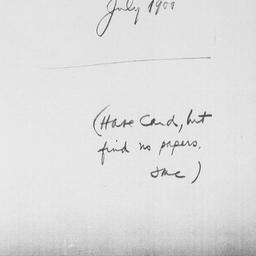 July 1900
(Have Card, but
find no papers.
JMC)